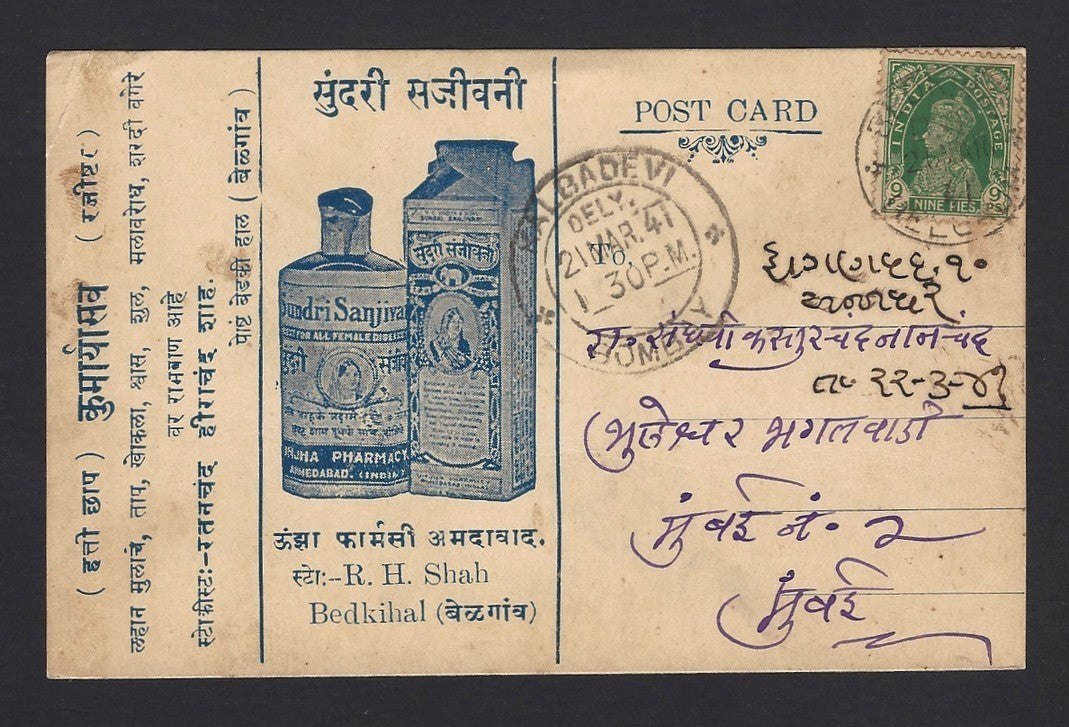 ( हत्ती छाप ) कुमार्यासव ( रजीष्टर )
लहान मुलांचे, ताप, खोकला, श्वास, शुल, मलावरोध, शरदी वगेरे
वर रामबाण आहे
स्टोकीस्ट:-रतनचंद हीराचंद शाह.
पोष्ट बेडकी हाल ( बेळगांव )
सुंदरी सजीवनी
सुंदरी संजीवनी
Sundri Sanjivan
FOR ALL FEMALE DISEA
UNJHA PHARMACY
AHMEDABAD. (INDIA)
ऊंझा फार्मसी अमदावाद.
स्टो:--R. H. Shah
Bedkihal (बेळगांव)
POST CARD
INDIA POSTAGE
9 PS 9 PS
NINE PIES
KALBADEVI
DELY.
21 MAR. 41
1 30 P.M.
BOMBAY
To,
कस्तुरचंद नानचंद
ता. २२-३-४१
भुलेश्वर भगतवाडी
मुंबई नं. २
मुंबई